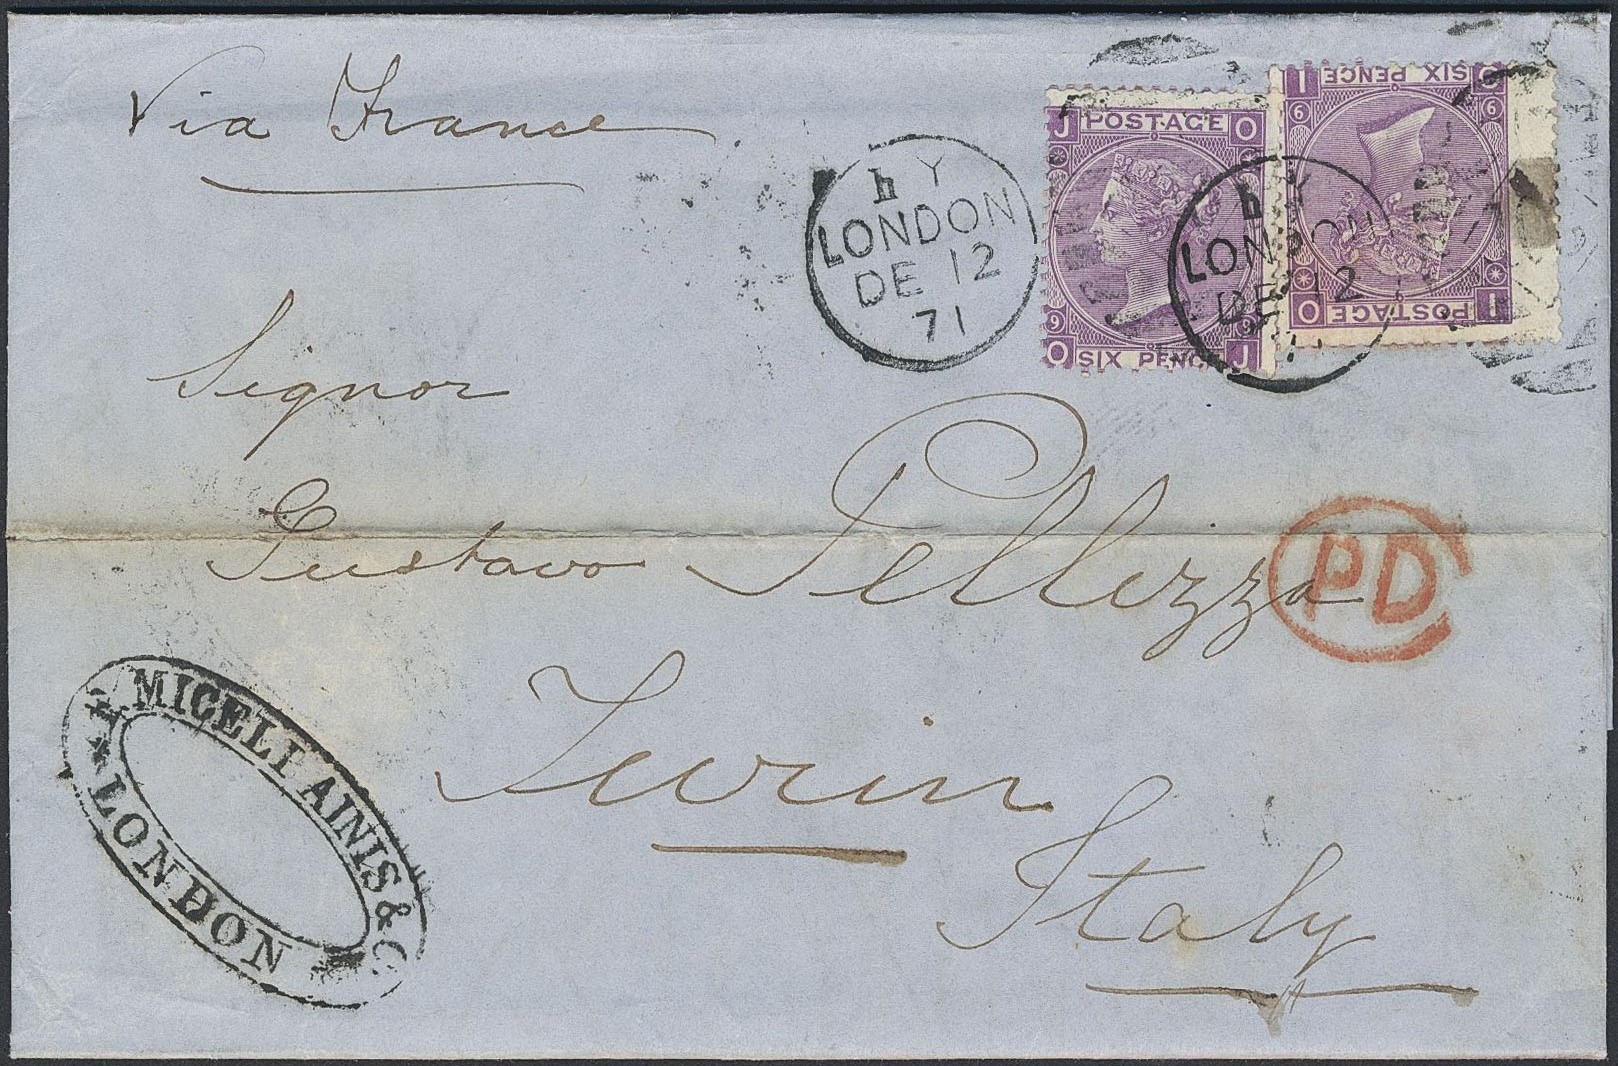 Via France
J POSTAGE O
9 9
O SIX PENCE J
I SIX PENCE O
6 6
O POSTAGE I
h Y
LONDON
DE 12
71
h Y
LONDON
DE 12
Signor
Gustavo Pellizza
PD
Turin
Italy
MICELI AINIS & Co
LONDON